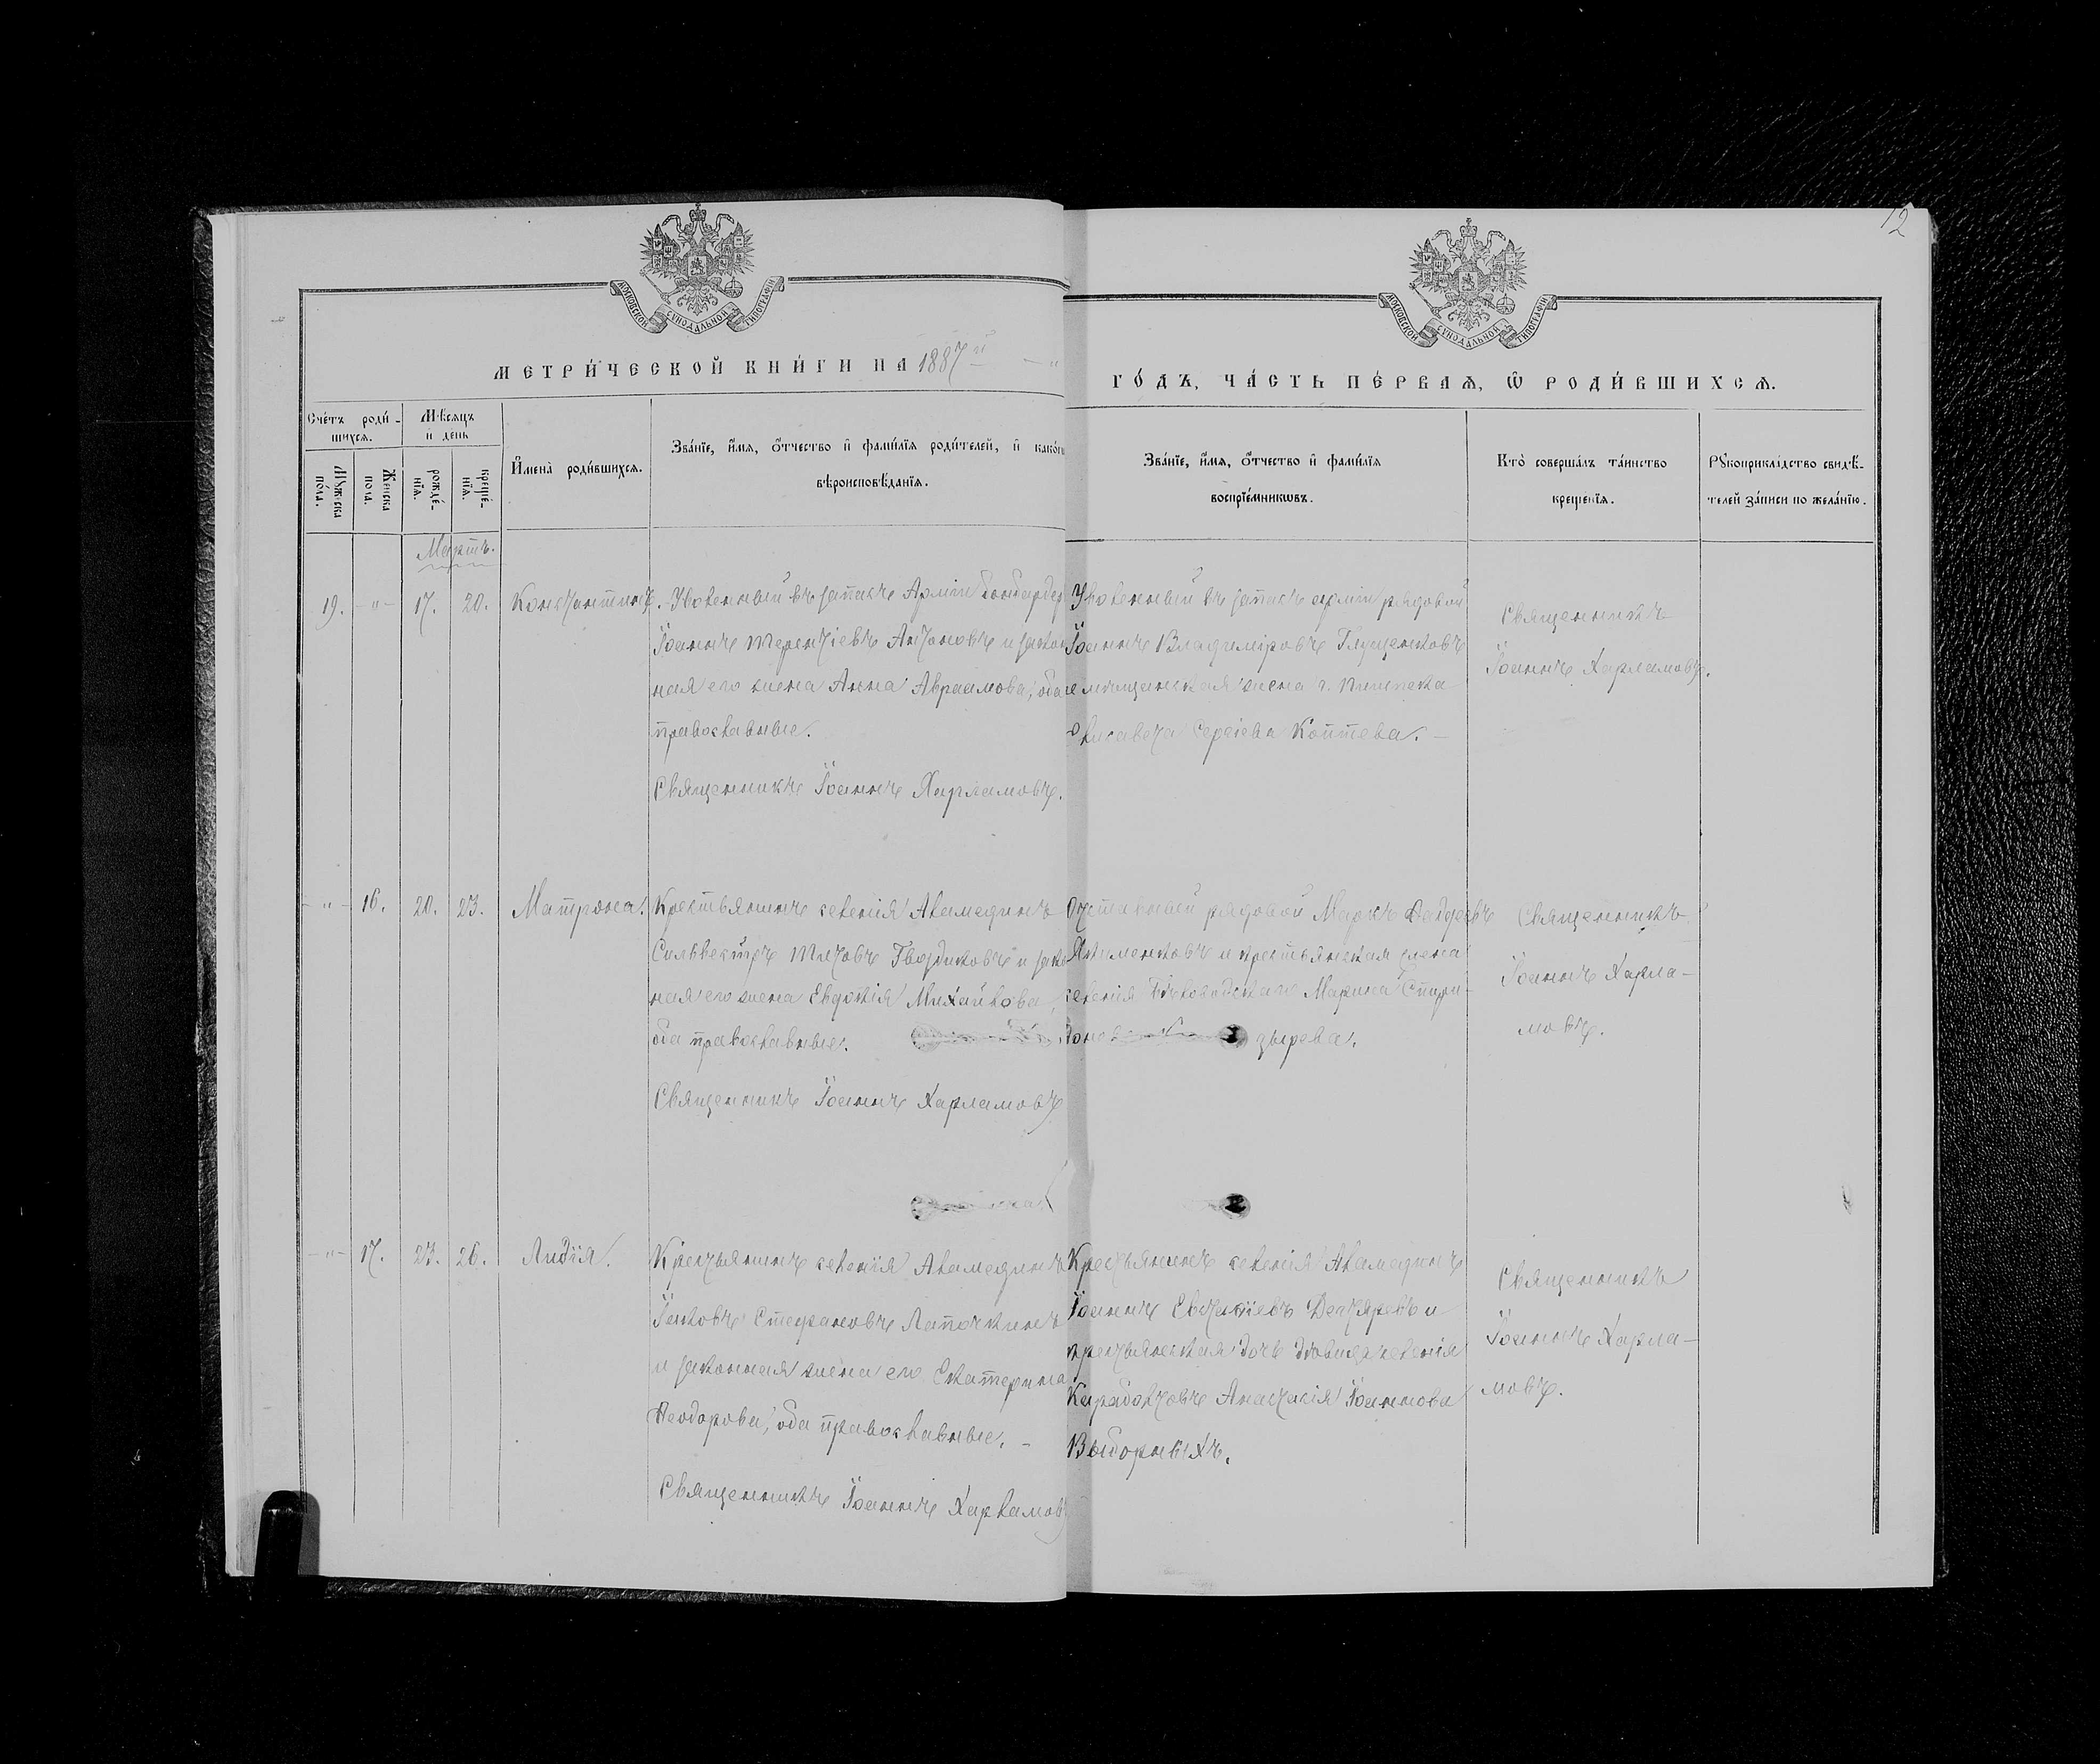 12
МОСКОВСКОЙ СУНОДАЛЬНОЙ ТИПОГРАФІИ
МОСКОВСКОЙ СУНОДАЛЬНОЙ ТИПОГРАФІИ
МЕТРИ́ЧЕСКОЙ КНИ́ГИ НА 1887 й
ГО́ДЪ, ЧА́СТЬ ПЕ́РВАѦ, Ѿ РОДИ́ВШИХСѦ.
Сче́тъ роди́-
шихсѧ.
Мѣсѧцъ
и день
Мꙋжеска
по́ла.
Женска
пола.
рожде́-
нїѧ.
креще́-
нїѧ.
И҆мена̀ роди́вшихсѧ.
Зва́нїе, и҆́мѧ, о҆́тчество и҆ фами́лїѧ роди́телей, и҆ како́гѡ
вѣроисповѣ́данїѧ.
Зва́нїе, и҆́мѧ, о҆́тчество и҆ фами́лїѧ
воспрїе́мникѡвъ.
Кто̀ соверша́лъ та́инство
креще́нїѧ.
Рꙋкоприкла́дство свидѣ́-
телей за́писи по жела́нїю.
Мартъ.
19. - " - 17. 20. Константинъ.
Уволенный въ запасъ Арміи бомбардер
Іоаннъ Терентіевъ Антоновъ и закон
ная его жена Анна Авраамова, оба
православные.
Священникъ Іоаннъ Харламовъ.
Уволенный въ запасъ арміи рядовой
Іоаннъ Владиміровъ Глущенковъ
и мѣщанская жена г.
Елисавета Сергіева Коптева. -
Священникъ
Іоаннъ Харламовъ.
- " - 16. 20. 23. Матрона.
Крестьянинъ селенія Аламединъ
Сильвестръ Титовъ Гвоздиковъ и зако
ная его жена Евдокія Михайлова,
оба православные.
Священникъ Іоаннъ Харламовъ
Отставный рядовой Маркъ Фаддеевъ
Якименковъ и крестьянская жена
селенія Бѣловодскаго Марина Спири-
донова зырева.
Священникъ
Іоаннъ Харла-
мовъ.
- " - 17. 23. 26. Лидія.
Крестьянинъ селенія Аламединъ
Іаковъ Стефановъ Лапочкинъ
и законная жена его Екатерина
Феодорова, оба православные. -
Священникъ Іоаннъ Харламовъ
Крестьянинъ селенія Аламединъ
Іоаннъ Евстафіевъ Дегтяревъ и
крестьянская дочь дѣвица селенія
Карабалтовъ Анастасія Іоаннова
Выборныхъ.
Священникъ
Іоаннъ Харла-
мовъ.